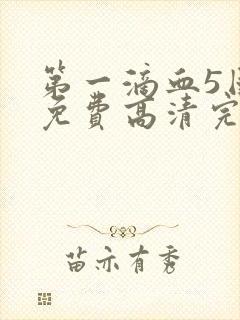 第一滴血5国
免费高清完
苗亦有秀